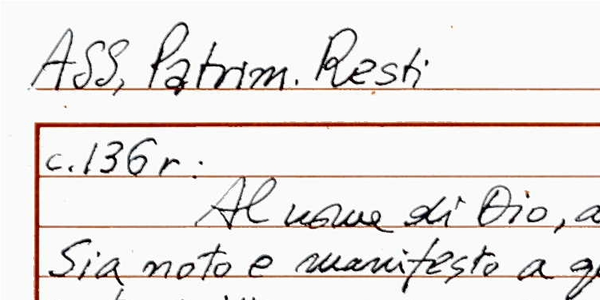 ASS, Patrim. Resti
c. 136 r.
Al nome di Dio, a
Sia noto e manifesto a